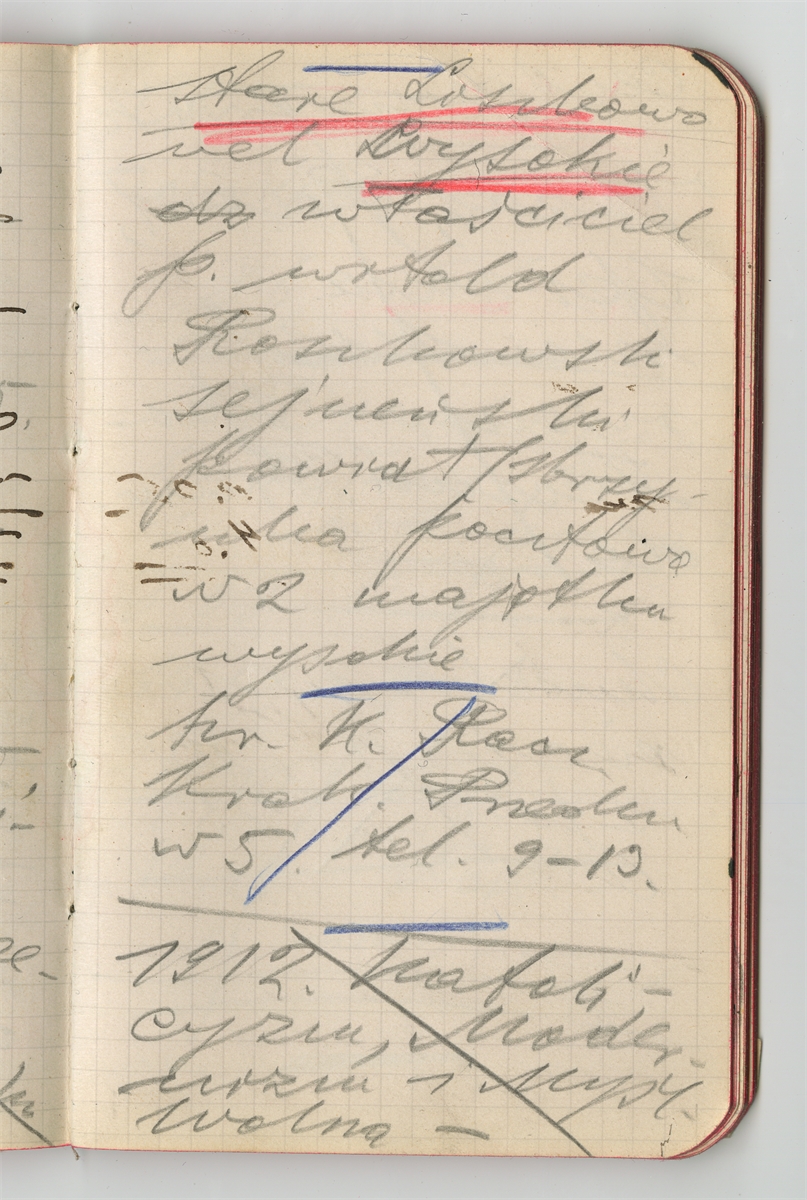 stare Loszkowo
vel Wysokie
dz właściciel
p. witold
Roszkowski
sejneński
powiat /skrzy-
nka pocztowa
w 2 majątku
wysokie
hr. H. Racz.
Krak. Przedm.
w 5. tel. 9–13.
1912. Katoli-
cyzm, Moder-
nizm i Myśl.
Wolna –